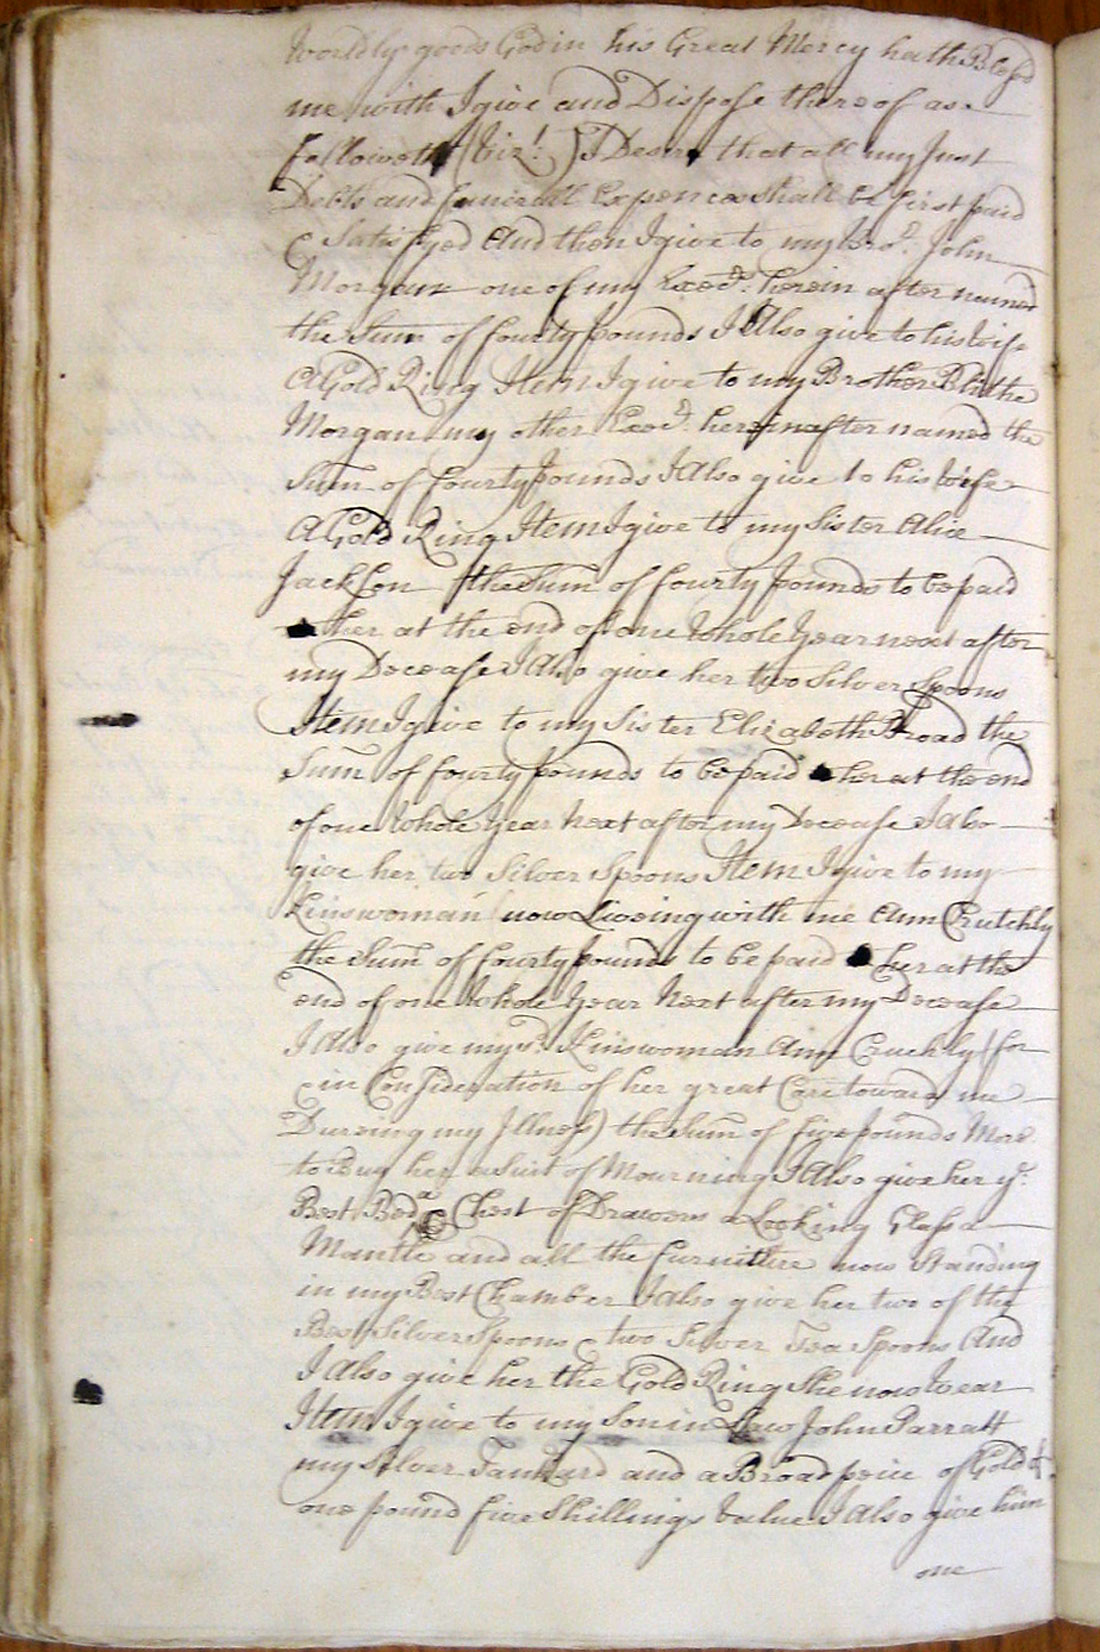 Worldly goods God in his Great Mercy hath Blessd
me with I give and Dispose thereof as
followeth (vizt.) I Desire that all my Just
Debts and funirall Expences shall be first paid
& Satisfyed And then I give to my Bror. John
Morgan one of my Execrs. herein after named
the Sum of fourty pounds I Also give to his Wife
A Gold Ring Item I give to my Brother Blithe
Morgan my other Execr. hereinafter named the
Sum of fourty pounds I Also give to his Wife
A Gold Ring Item I give to my Sister Alice
Jackson the Sum of fourty pounds to be paid
her at the end of one Whole Year next after
my Decease I Also give her two Silver Spoons
Item I give to my Sister Elizabeth Broad the
Sum of fourty pounds to be paid her at the end
of one Whole Year Next after my Decease I also
give her two Silver Spoons Item I give to my
Kinswoman now Liveing with me Ann Crutchly
the Sum of fourty pounds to be paid her at the
end of one Whole Year Next after my Decease
I Also give my sd. Kinswoman Ann Cruchly (for
& in Consideration of her great Care toward me
Dureing my Illness) the Sum of five pounds More
to Buy her a Suit of Mourning I Also give her ye.
Best Bed a Chest of Drawers a Looking Glass a
Mantle and all the Furniture now Standing
in my Best Chamber I also give her two of the
Best Silver Spoons & two Silver Tea Spoons And
I Also give her the Gold Ring She now Wear
Item I give to my Son in Law John Parratt
my Silver Tankard and a Broad peice of Gold of
one pound five Shillings Value I Also give him
one